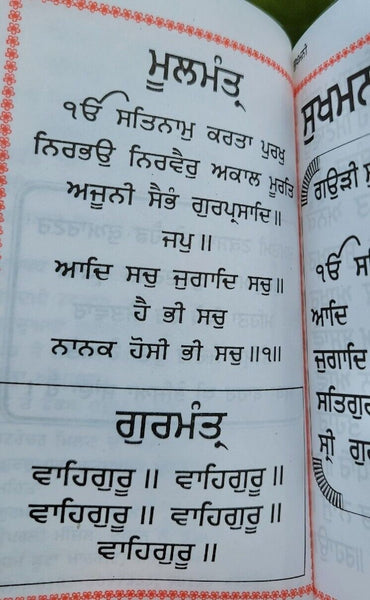 ਮੂਲਮੰਤ੍ਰ
ੴ ਸਤਿਨਾਮੁ ਕਰਤਾ ਪੁਰਖੁ
ਨਿਰਭਉ ਨਿਰਵੈਰੁ ਅਕਾਲ ਮੂਰਤਿ
ਅਜੂਨੀ ਸੈਭੰ ਗੁਰਪ੍ਰਸਾਦਿ॥
ਜਪੁ॥
ਆਦਿ ਸਚੁ ਜੁਗਾਦਿ ਸਚੁ॥
ਹੈ ਭੀ ਸਚੁ
ਨਾਨਕ ਹੋਸੀ ਭੀ ਸਚੁ॥੧॥
ਗੁਰਮੰਤ੍ਰ
ਵਾਹਿਗੁਰੂ॥ ਵਾਹਿਗੁਰੂ॥
ਵਾਹਿਗੁਰੂ॥ ਵਾਹਿਗੁਰੂ॥
ਵਾਹਿਗੁਰੂ॥
ਸੁਖਮਨ
ਗਉੜੀ
ੴ ਸ
ਆਦਿ
ਜੁਗਾਦਿ
ਸਤਿਗੁਰ
ਸ੍ਰੀ ਗੁਰ